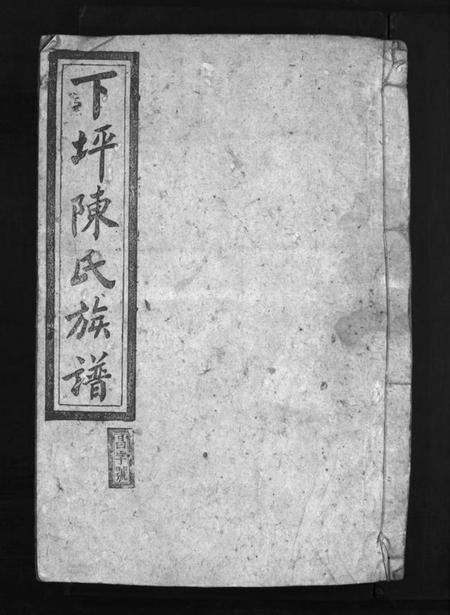 下坪陳氏族譜
字號